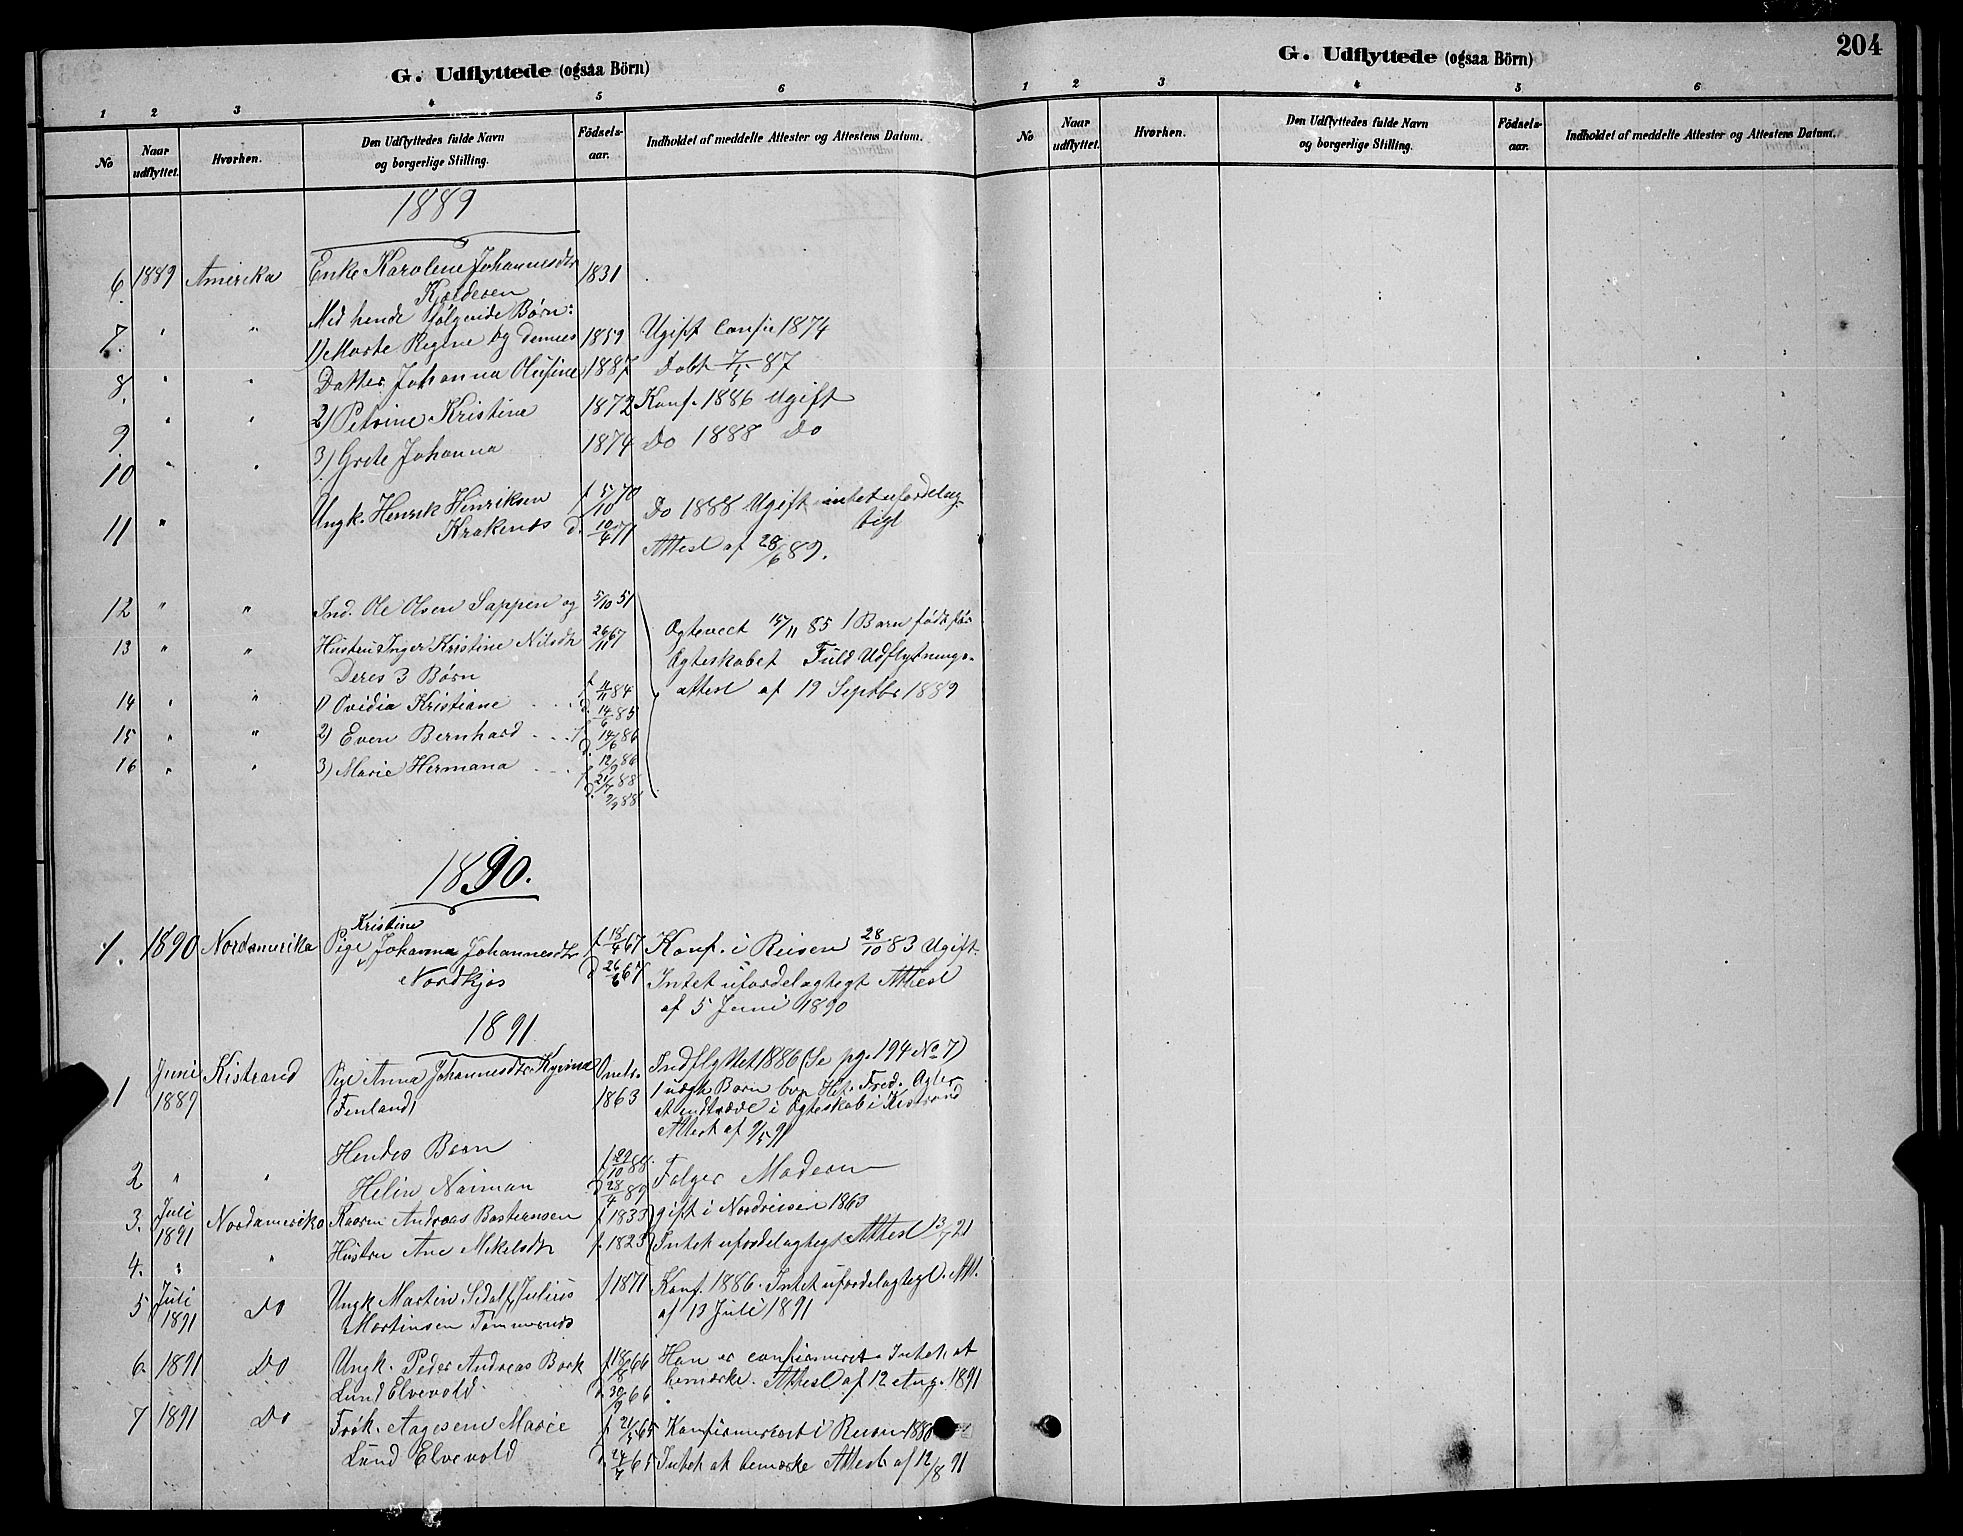 G. Udflyttede (ogsaa Börn)
1 2 3 4 5 6
No
Naar udflyttet.
Hvorhen.
Den Udflyttedes fulde Navn og borgerlige Stilling.
Födsels-aar.
Indholdet af meddelte Attester og Attestens Datum.
1889
6. 1889 Amerika Enke Karolene Johannesdtr 1831
Med hende følgende Børn:
7. " " 1) Marte Regine og dennes 1859 Ugift Confir 1874
8. " " Datter Johanna Olufine 1887 Døbt 7/5 87
9 " " 2) Petrine Kristine 1872 Konf. 1886 Ugift
10 " " 3) Grete Johanna 1874 Do 1888 Do
11 " Ungk. Henrik Henriksen f 5/10 70 Do 1888 Ugift intet ufordelag-
Krakenes d. 10/6 71 tigt
Attest af 28/6 89.
12 " " Ind. Ole Olsen Sappen og 5/10 51
13 " " Hustru Inger Kristine Nilsdtr 26/11 67 Ægteviet 15/11 85 1 Barn født før
Deres 3 Børn Ægteskabet Fuld Udflytnings-
14 " " 1) Ovidia Kristiane f 11/11 84 attest af 19 Septbr 1889
d. 14/6 85
15 " " 2) Even Bernhard f 14/6 86
d. 12/9 86
16 " " 3) Marie Hermana f 21/7 88
d. 2/9 88
1890.
Kristine
1. 1890 Nordamerika Pige Johanna Johannesdtr f 18/4 67 Konf. i Reisen 28/10 83 Ugift
Nordkjos d 26/6 67 Intet ufordelagtegt Attest
af 5 Juni 1890
1891
1 Juni 1889 Kistrand Pige Anna Johannesdtr 1863 Indflyttet 1886 (Se pg. 194 No 7)
(Finland) 1 uægte Barn Fred. Agter
at indtræde i Ægteskab i Kistrand
Attest af 9/5 91
Hendes Barn
2 " " Helin Naiman f 29/10 88 Følger Moderen
d 28/4 89
3. Juli 1891 Nordamerika Andreas Bastensen f 1833 gift i Nordreisen 1863
4. " " Hustru Ane Mikelsdtr f. 1823 Intet ufordelagtegt Attest 13/7 91
5 Juli 1891 Do Ungk Martin Julius f 1871 Konf. 1886. Intet ufordelagtegt. Att.
Martinsen af 13 Juli 1891
6. 1891 Do Ungk. Peder Andreas Bork f 18/8 66 Han er confirmeret. Intet at
Lund Elvevold d 30/9 66 bemærke. Attest af 12 Aug. 1891
7 1891 Do Frøk. Aagesine Marie f 21/5 65 Konfirmeret i Reisen 1880
Lund Elvevold d 24/7 65 Intet at bemærke Attest af 12/8 91
G. Udflyttede (ogsaa Börn)
204
1 2 3 4 5 6
No
Naar udflyttet.
Hvorhen.
Den Udflyttedes fulde Navn og borgerlige Stilling.
Födsels-aar.
Indholdet af meddelte Attester og Attestens Datum.